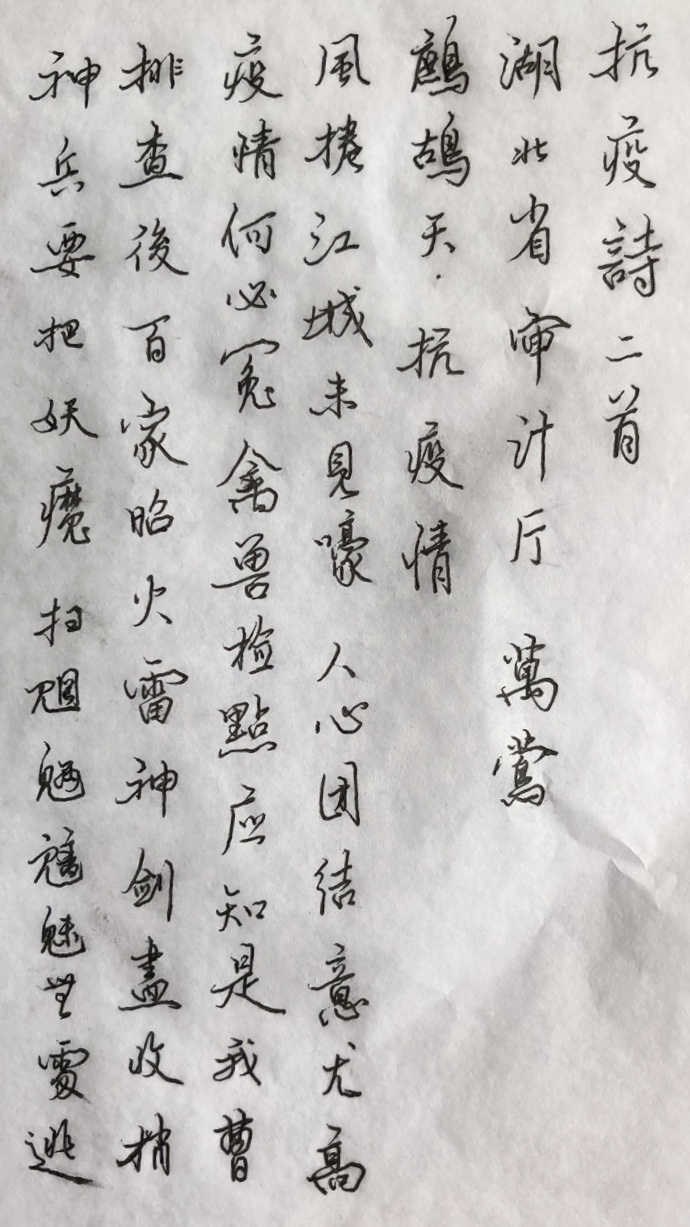 抗疫詩二首
湖北省审计厅 萬鶯
鷓鴣天·抗疫情
風捲江城未見嚎 人心团结意尤高
疫情何必冤禽兽检點应知是我曹
排查後百家昭火雷神劍盡收梢
神兵要把妖魔扫魍魎魑魅無處逃